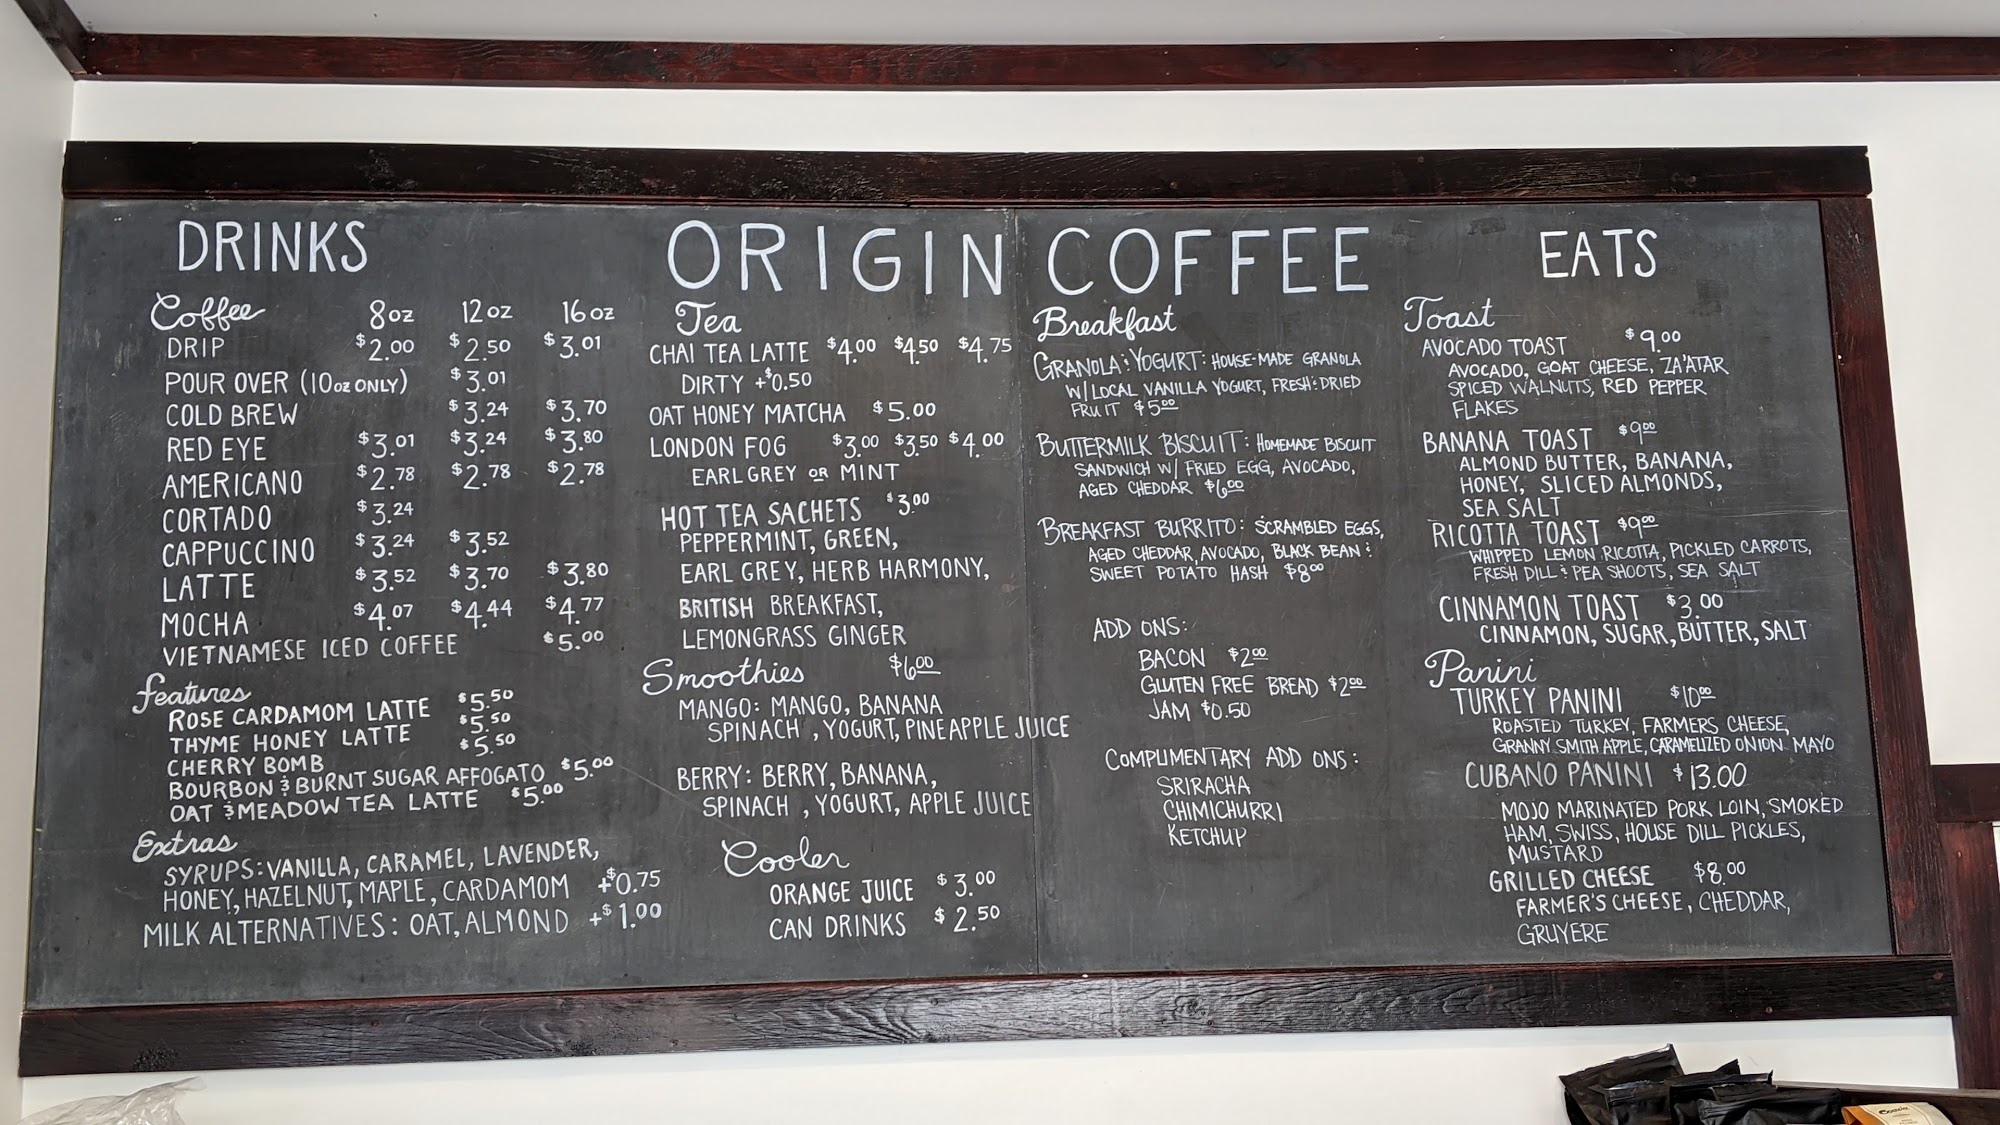 ORIGIN COFFEE
DRINKS
Coffee 8oz 12oz 16oz
DRIP $2.00 $2.50 $3.01
POUR OVER (10oz ONLY) $3.01
COLD BREW $3.24 $3.70
RED EYE $3.01 $3.24 $3.80
AMERICANO $2.78 $2.78 $2.78
CORTADO $3.24
CAPPUCCINO $3.24 $3.52
LATTE $3.52 $3.70 $3.80
MOCHA $4.07 $4.44 $4.77
VIETNAMESE ICED COFFEE $5.00
features
ROSE CARDAMOM LATTE $5.50
THYME HONEY LATTE $5.50
CHERRY BOMB $5.50
BOURBON & BURNT SUGAR AFFOGATO $5.00
OAT & MEADOW TEA LATTE $5.00
Extras
SYRUPS: VANILLA, CARAMEL, LAVENDER,
HONEY, HAZELNUT, MAPLE, CARDAMOM +$0.75
MILK ALTERNATIVES: OAT, ALMOND +$1.00
Tea
CHAI TEA LATTE $4.00 $4.50 $4.75
DIRTY +$0.50
OAT HONEY MATCHA $5.00
LONDON FOG $3.00 $3.50 $4.00
EARL GREY OR MINT
HOT TEA SACHETS $3.00
PEPPERMINT, GREEN,
EARL GREY, HERB HARMONY,
BRITISH BREAKFAST,
LEMONGRASS GINGER
Smoothies $6.00
MANGO: MANGO, BANANA
SPINACH, YOGURT, PINEAPPLE JUICE
BERRY: BERRY, BANANA,
SPINACH, YOGURT, APPLE JUICE
Cooler
ORANGE JUICE $3.00
CAN DRINKS $2.50
Breakfast
GRANOLA & YOGURT: HOUSE-MADE GRANOLA
W/ LOCAL VANILLA YOGURT, FRESH & DRIED
FRUIT $5.00
BUTTERMILK BISCUIT: HOMEMADE BISCUIT
SANDWICH W/ FRIED EGG, AVOCADO,
AGED CHEDDAR $6.00
BREAKFAST BURRITO: SCRAMBLED EGGS,
AGED CHEDDAR, AVOCADO, BLACK BEAN &
SWEET POTATO HASH $8.00
ADD ONS:
BACON $2.00
GLUTEN FREE BREAD $2.00
JAM $0.50
COMPLIMENTARY ADD ONS:
SRIRACHA
CHIMICHURRI
KETCHUP
EATS
Toast
AVOCADO TOAST $9.00
AVOCADO, GOAT CHEESE, ZA'ATAR
SPICED WALNUTS, RED PEPPER
FLAKES
BANANA TOAST $9.00
ALMOND BUTTER, BANANA,
HONEY, SLICED ALMONDS,
SEA SALT
RICOTTA TOAST $9.00
WHIPPED LEMON RICOTTA, PICKLED CARROTS,
FRESH DILL & PEA SHOOTS, SEA SALT
CINNAMON TOAST $3.00
CINNAMON, SUGAR, BUTTER, SALT
Panini
TURKEY PANINI $10.00
ROASTED TURKEY, FARMERS CHEESE,
GRANNY SMITH APPLE, CARAMELIZED ONION MAYO
CUBANO PANINI $13.00
MOJO MARINATED PORK LOIN, SMOKED
HAM, SWISS, HOUSE DILL PICKLES,
MUSTARD
GRILLED CHEESE $8.00
FARMER'S CHEESE, CHEDDAR,
GRUYERE